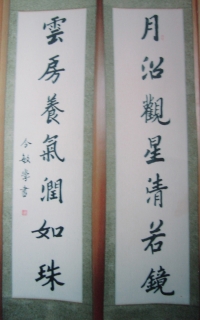 月沼觀星清若鏡
雲房養氣潤如珠
今敏學書